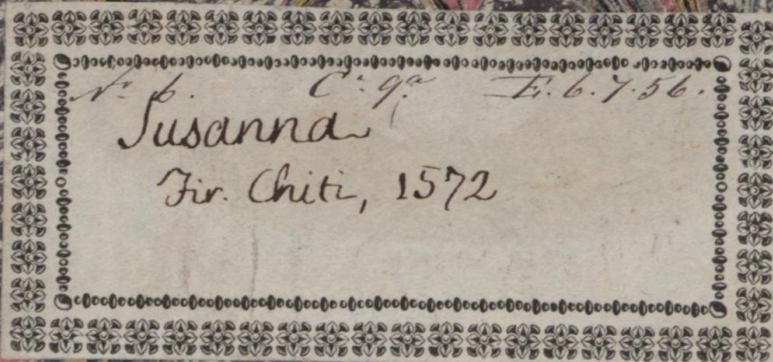 Nº 6. Cª 9ª E.6.7.56.
Susanna
Fir. Chiti, 1572